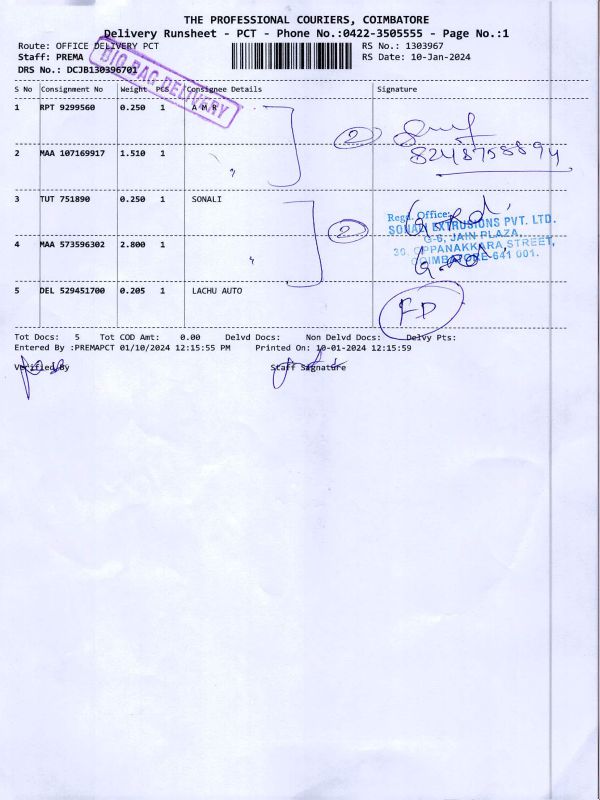 THE PROFESSIONAL COURIERS, COIMBATORE
Delivery Runsheet - PCT - Phone No.:0422-3505555 - Page No.:1
Route: OFFICE DELIVERY PCT RS No.: 1303967
Staff: PREMA RS Date: 10-Jan-2024
DRS No.: DCJB130396701
BIG BAG DELIVERY
S No Consignment No Weight PCS Consignee Details Signature
1 RPT 9299560 0.250 1 A M R
2
8248758894
2 MAA 107169917 1.510 1 "
3 TUT 751890 0.250 1 SONALI
2
Regd. Office:
SONALI EXTRUSIONS PVT. LTD.
G-6, JAIN PLAZA,
30, OPPANAKKARA STREET,
COIMBATORE-641 001.
4 MAA 573596302 2.800 1 "
5 DEL 529451700 0.205 1 LACHU AUTO
FD
Tot Docs: 5 Tot COD Amt: 0.00 Delvd Docs: Non Delvd Docs: Delvy Pts:
Entered By :PREMAPCT 01/10/2024 12:15:55 PM Printed On: 10-01-2024 12:15:59
Verified By Staff Signature